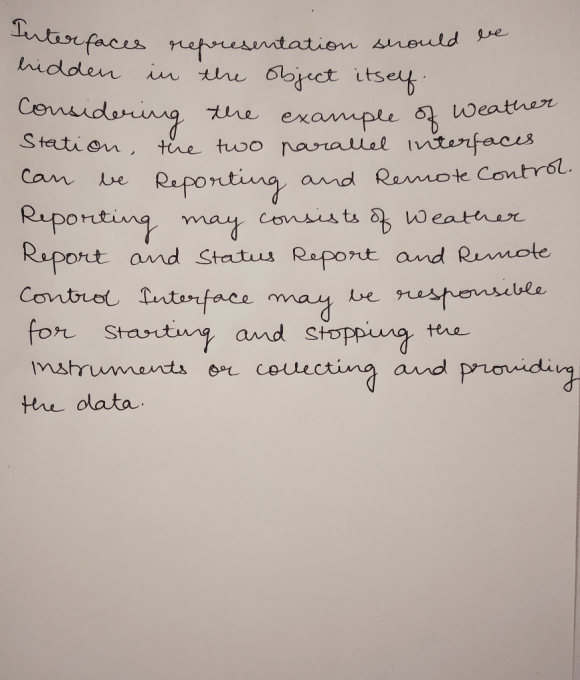 Interfaces representation should be
hidden in the object itself.
Considering the example of Weather
Station, the two parallel interfaces
can be Reporting and Remote Control.
Reporting may consists of Weather
Report and Status Report and Remote
Control Interface may be responsible
for starting and stopping the
instruments or collecting and providing
the data.